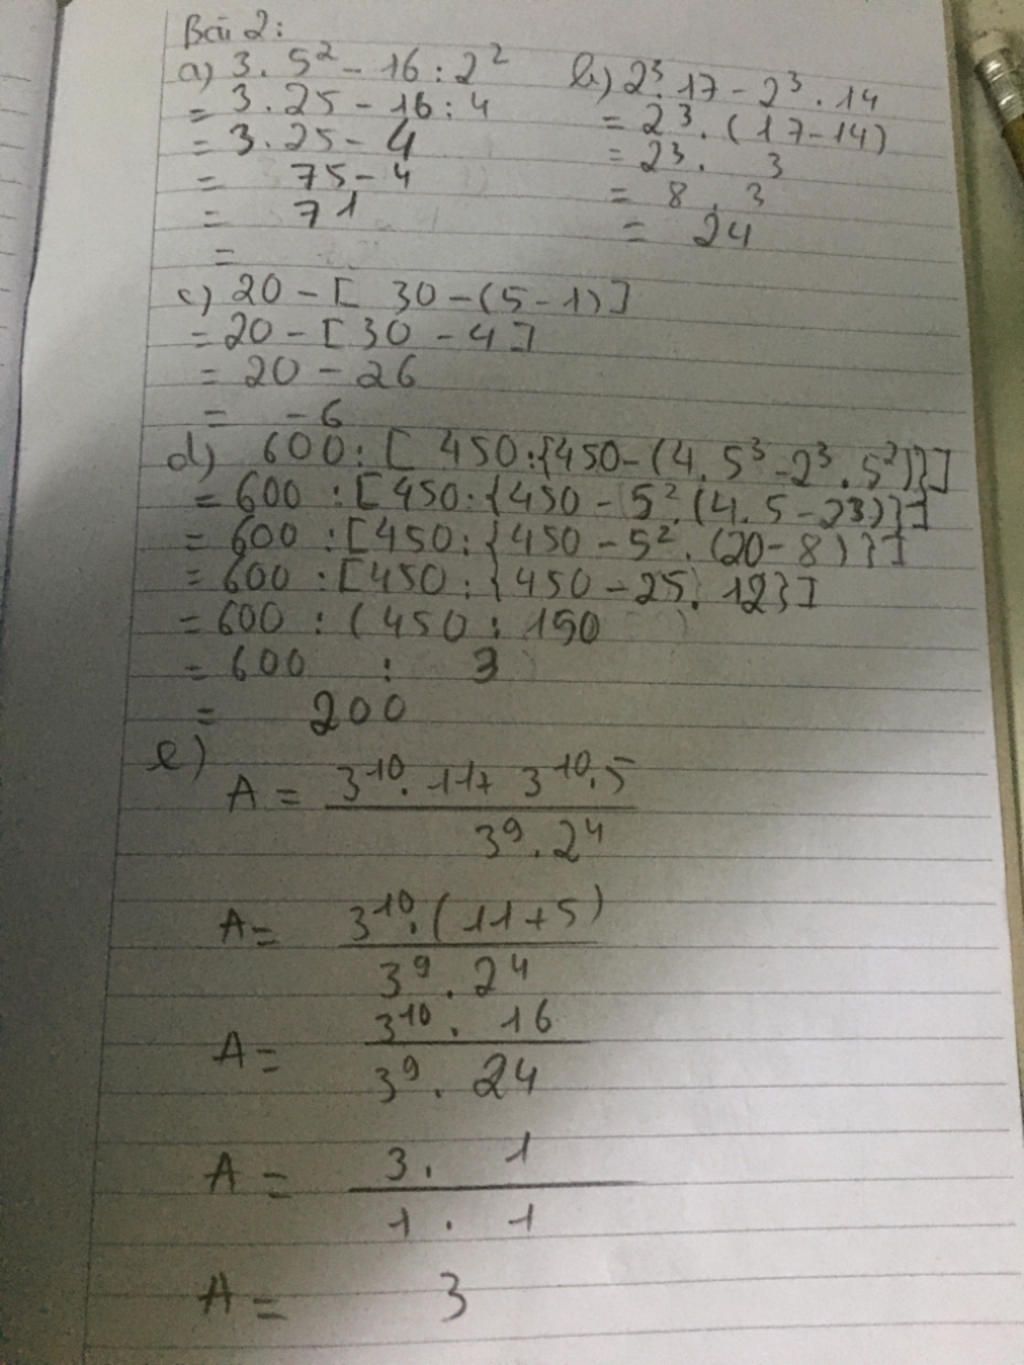 Bài 2:
a) 3. 5² - 16 : 2²
= 3 . 25 - 16 : 4
= 3.25 - 4
= 75 - 4
= 71
=
b) 2³. 17 - 2³. 14
= 2³. (17-14)
= 2³. 3
= 8 . 3
= 24
c) 20 - [ 30 - (5 - 1) ]
= 20 - [30 - 4]
= 20 - 26
= -6
d) 600 : [ 450 :{450 - (4. 5³ - 2³. 5²)}]
= 600 : [450 : {450 - 5². (4. 5 - 23)}]
= 600 : [450 : {450 - 5². (20 - 8)}]
= 600 : [450 : {450 - 25. 12}]
= 600 : (450 : 150
= 600 : 3
= 200
e)
A = 3¹⁰. 11 + 3¹⁰. 5
3⁹ . 2⁴
A = 3¹⁰. (11 + 5)
3⁹ . 2⁴
A = 3¹⁰ . 16
3⁹ . 24
A = 3 . 1
1 . 1
A = 3